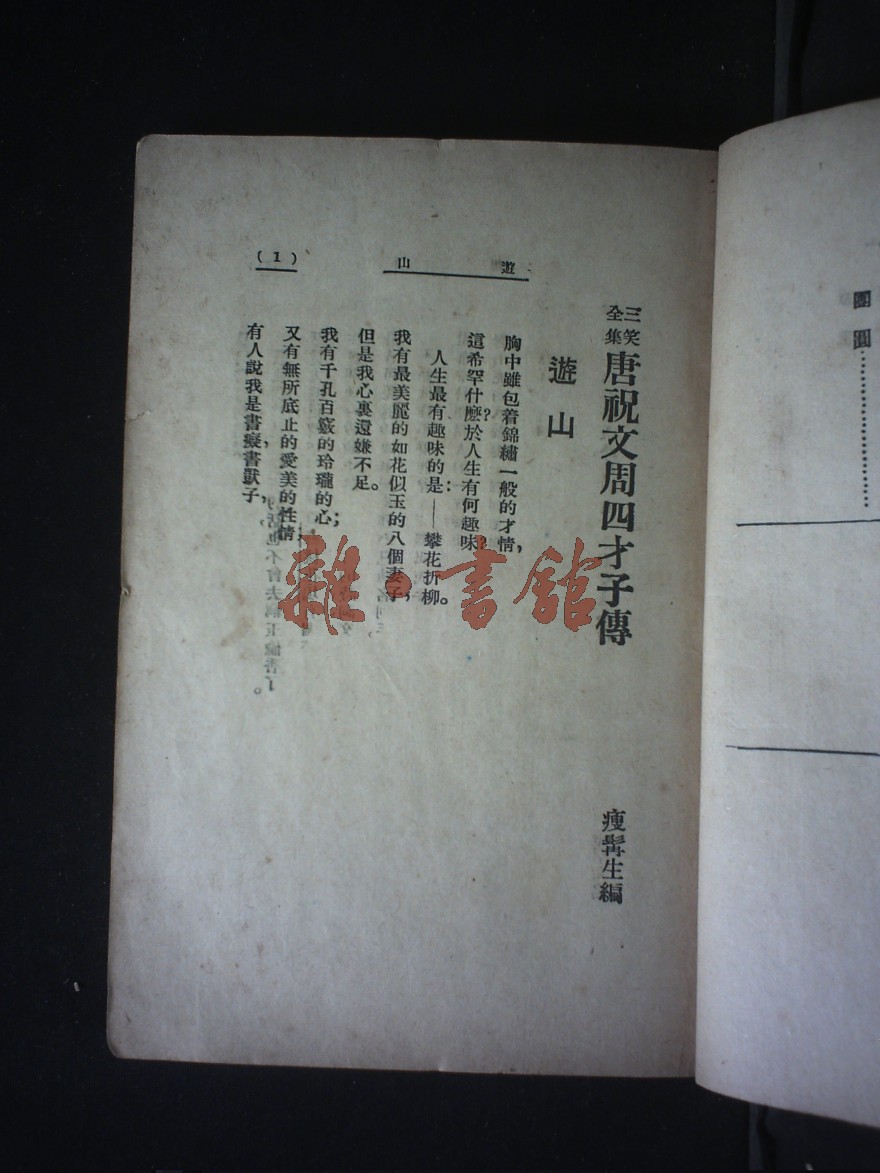 團圓⋯⋯⋯⋯
三笑全集 唐祝文周四才子傳
瘦髯生編
遊山
(1)
遊山
胸中雖包着錦繡一般的才情,
這希罕什麽?於人生有何趣味?
人生最有趣味的是:——攀花折柳。
我有最美麗的如花似玉的八個妻子,
但是我心裏還嫌不足。
我有千孔百竅的玲瓏的心;
又有無所底止的愛美的性情,
有人說我是書癡,書獃子,
雜·書館